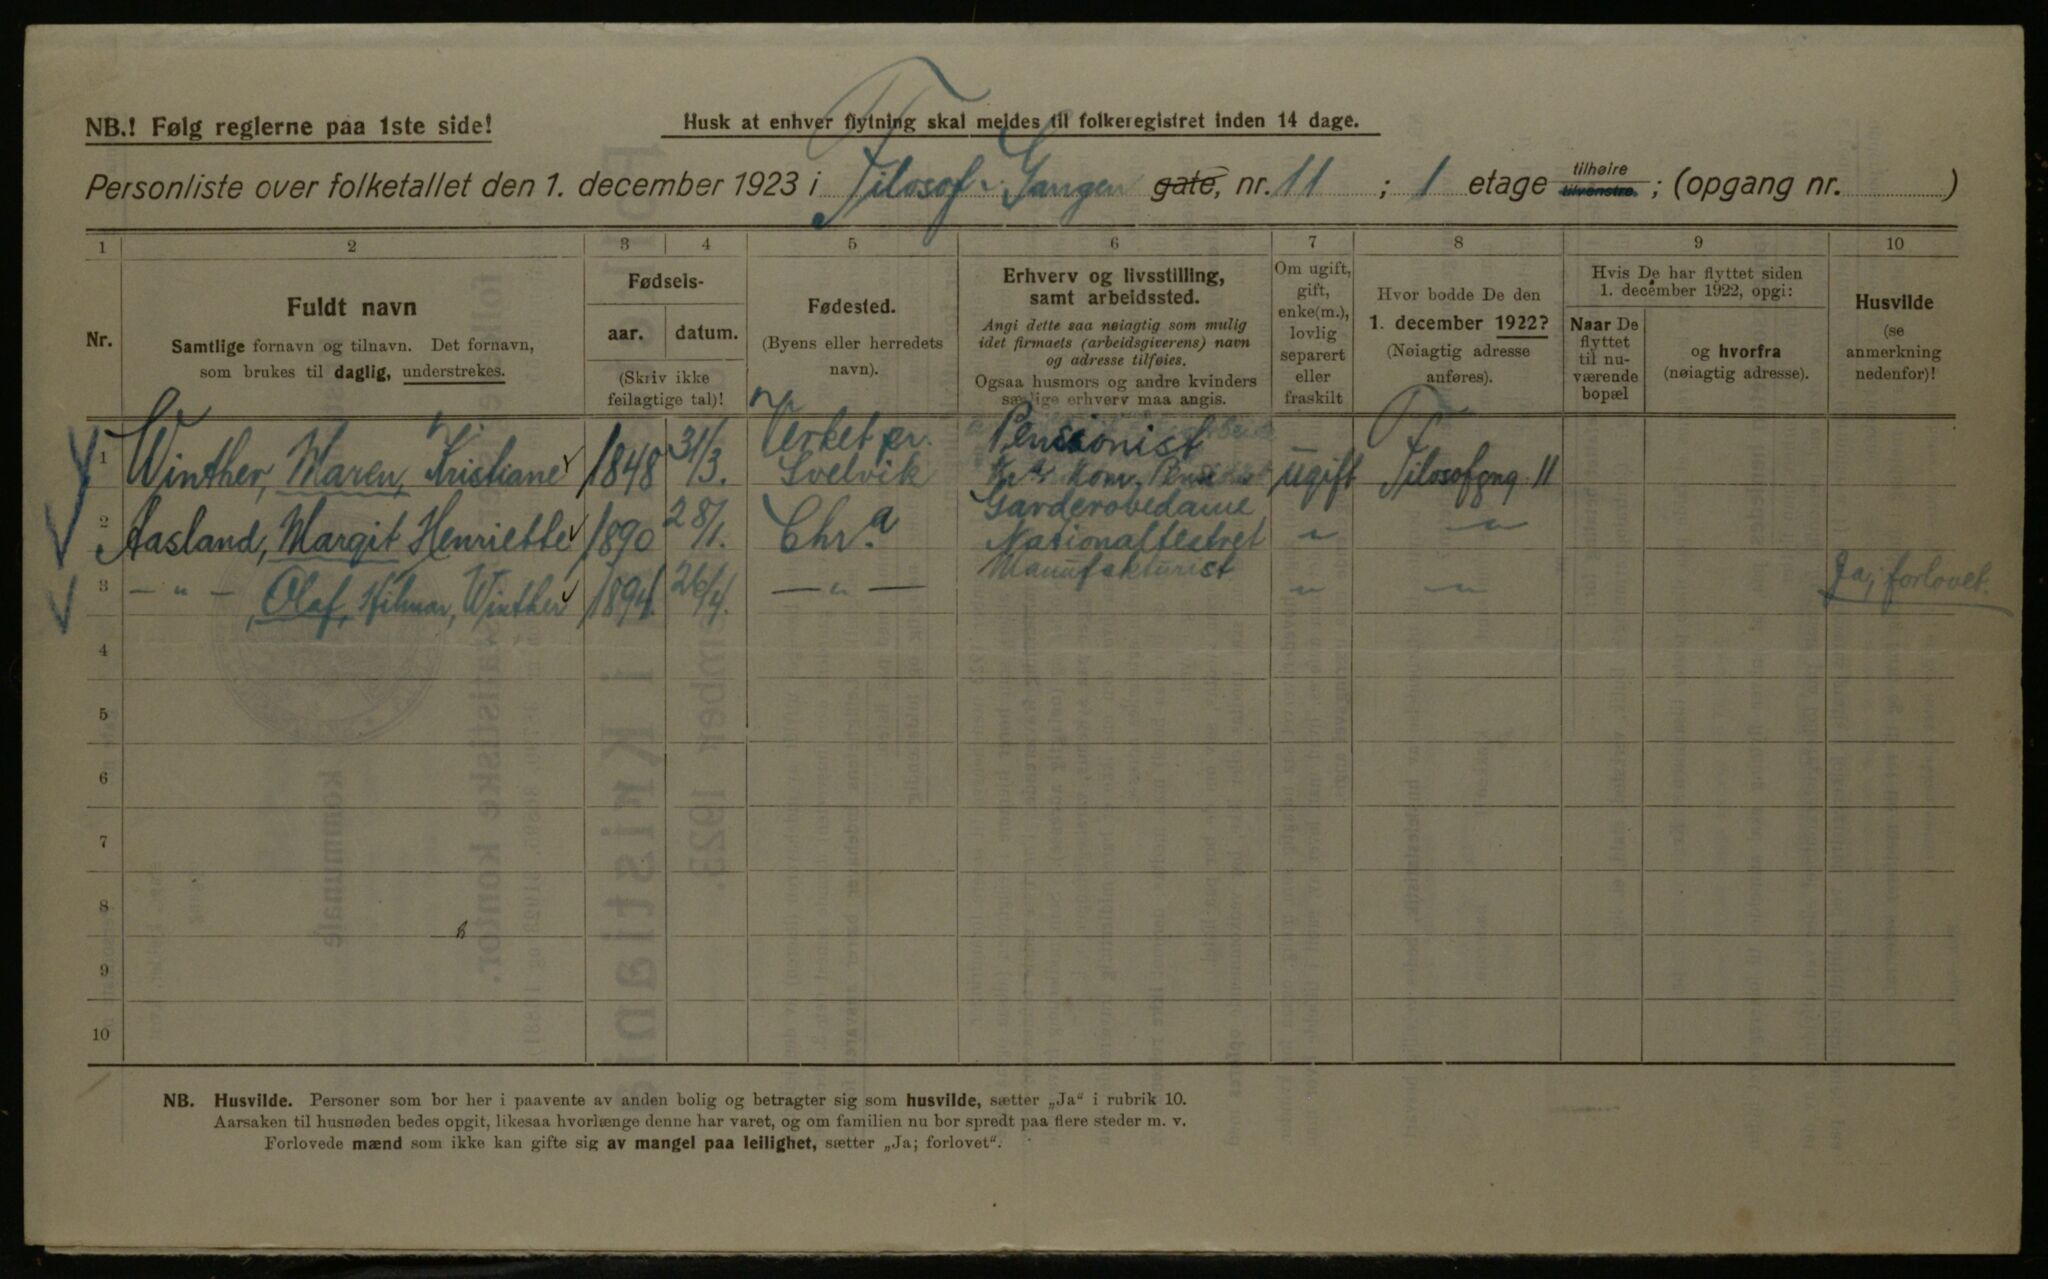 NB.! Følg reglerne paa 1ste side!
Husk at enhver flytning skal meldes til folkeregistret inden 14 dage.
Personliste over folketallet den 1. december 1923 i Filosof-Gangen gate, nr. 11 ; 1 etage tilhøire tilvenstre. ; (opgang nr. )
1 2 3 4 5 6 7 8 9 10
Nr.
Fuldt navn
Samtlige fornavn og tilnavn. Det fornavn,
som brukes til daglig, understrekes.
Fødsels-
aar. datum.
(Skriv ikke
feilagtige tal)!
Fødested.
(Byens eller herredets
navn).
Erhverv og livsstilling,
samt arbeidssted.
Angi dette saa nøiagtig som mulig
idet firmaets (arbeidsgiverens) navn
og adresse tilføies.
Ogsaa husmors og andre kvinders
særlige erhverv maa angis.
Om ugift,
gift,
enke(m.),
lovlig
separert
eller
fraskilt
Hvor bodde De den
1. december 1922?
(Nøiagtig adresse
anføres).
Hvis De har flyttet siden
1. december 1922, opgi:
Naar De
flyttet
til nu-
værende
bopæl
og hvorfra
(nøiagtig adresse).
Husvilde
(se
anmerkning
nedenfor)!
1 Winther, Maren, Kristiane 1848 31/3. Verket pr. Svelvik Pensionist ugift Filosofgng. 11
2 Aasland, Margit Henriette 1890 28/1. Chr.a Garderobedame Nationalteatret " "
3 — " — , Olaf, Hilmar, Winther 1894 26/4. — " — Manufakturist " " Ja; forlovet.
4
5
6
7
8
9
10
NB. Husvilde. Personer som bor her i paavente av anden bolig og betragter sig som husvilde, sætter „Ja“ i rubrik 10.
Aarsaken til husnøden bedes opgit, likesaa hvorlænge denne har varet, og om familien nu bor spredt paa flere steder m. v.
Forlovede mænd som ikke kan gifte sig av mangel paa leilighet, sætter „Ja; forlovet“.